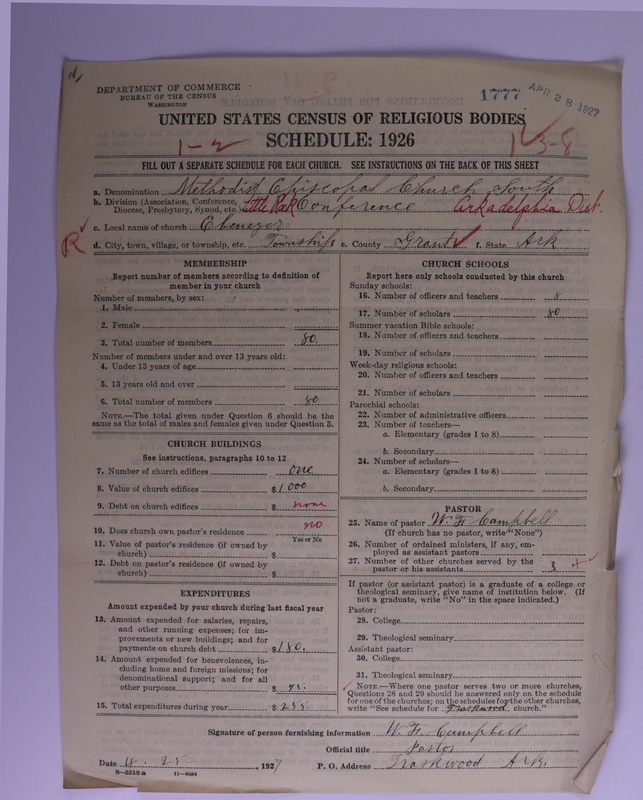 DEPARTMENT OF COMMERCE
BUREAU OF THE CENSUS
WASHINGTON
1777 APR 28 1927
UNITED STATES CENSUS OF RELIGIOUS BODIES
1-2 SCHEDULE: 1926 13-8
FILL OUT A SEPARATE SCHEDULE FOR EACH CHURCH. SEE INSTRUCTIONS ON THE BACK OF THIS SHEET
a. Denomination Methodist Episcopal Church South
b. Division (Association, Conference, Diocese, Presbytery, Synod, etc.) Little Rock Conference Arkadelphia Dist.
c. Local name of church Ebenezer
R
d. City, town, village, or township, etc. Township e. County Grant f. State Ark
MEMBERSHIP
Report number of members according to definition of
member in your church
Number of members, by sex:
1. Male
2. Female
3. Total number of members 80.
Number of members under and over 13 years old:
4. Under 13 years of age
5. 13 years old and over
6. Total number of members 80
NOTE.—The total given under Question 6 should be the
same as the total of males and females given under Question 3.
CHURCH BUILDINGS
See instructions, paragraphs 10 to 12
7. Number of church edifices one
8. Value of church edifices $1000
9. Debt on church edifices $ none
10. Does church own pastor's residence no
Yes or No
11. Value of pastor's residence (if owned by
church) $
12. Debt on pastor's residence (if owned by
church) $
EXPENDITURES
Amount expended by your church during last fiscal year
13. Amount expended for salaries, repairs,
and other running expenses; for im-
provements or new buildings; and for
payments on church debt $180.
14. Amount expended for benevolences, in-
cluding home and foreign missions; for
denominational support; and for all
other purposes $75.
15. Total expenditures during year $255
CHURCH SCHOOLS
Report here only schools conducted by this church
Sunday schools:
16. Number of officers and teachers 8
17. Number of scholars 80
Summer vacation Bible schools:
18. Number of officers and teachers
19. Number of scholars
Week-day religious schools:
20. Number of officers and teachers
21. Number of scholars
Parochial schools:
22. Number of administrative officers
23. Number of teachers—
a. Elementary (grades 1 to 8)
b. Secondary
24. Number of scholars—
a. Elementary (grades 1 to 8)
b. Secondary
PASTOR
25. Name of pastor W. F. Campbell
(If church has no pastor, write "None")
26. Number of ordained ministers, if any, em-
ployed as assistant pastors
27. Number of other churches served by the
pastor or his assistants 3
If pastor (or assistant pastor) is a graduate of a college or
theological seminary, give name of institution below. (If
not a graduate, write "No" in the space indicated.)
Pastor:
28. College
29. Theological seminary
Assistant pastor:
30. College
31. Theological seminary
NOTE.—Where one pastor serves two or more churches,
Questions 28 and 29 should be answered only on the schedule
for one of the churches; on the schedules for the other churches,
write "See schedule for Traskwood church."
Signature of person furnishing information W. F. Campbell
Official title Pastor
Date 4. 25, 1927 P. O. Address Traskwood Ark.
8-5518a 11-9034